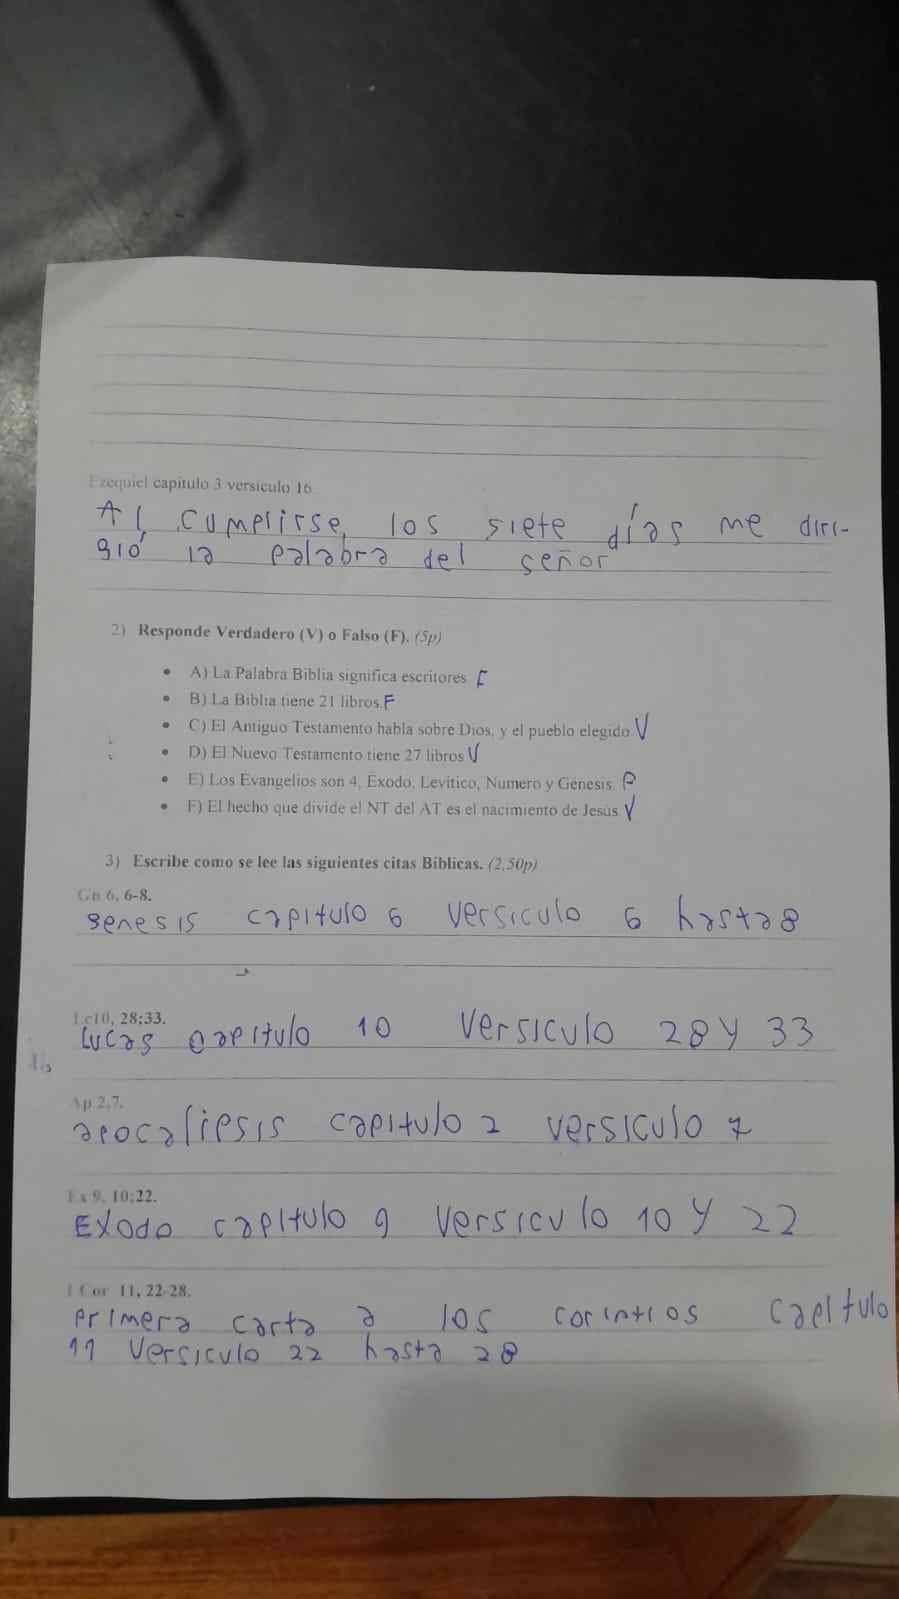 Ezequiel capitulo 3 versiculo 16
Al cumplirse los siete días me diri-
gió la palabra del señor
2) Responde Verdadero (V) o Falso (F). (5p)
• A) La Palabra Biblia significa escritores F
• B) La Biblia tiene 21 libros. F
• C) El Antiguo Testamento habla sobre Dios, y el pueblo elegido. V
• D) El Nuevo Testamento tiene 27 libros V
• E) Los Evangelios son 4, Éxodo, Levítico, Numero y Genesis. F
• F) El hecho que divide el NT del AT es el nacimiento de Jesús. V
3) Escribe como se lee las siguientes citas Bíblicas. (2,50p)
Gn 6, 6-8.
genesis capitulo 6 versiculo 6 hasta 8
Lc10, 28;33.
Lucas capitulo 10 versiculo 28 y 33
Ap 2,7.
apocalipsis capitulo 2 versiculo 7
Ex 9, 10;22.
Exodo capitulo 9 versiculo 10 y 22
1 Cor 11, 22-28.
primera carta a los corintios capitulo
11 versiculo 22 hasta 28